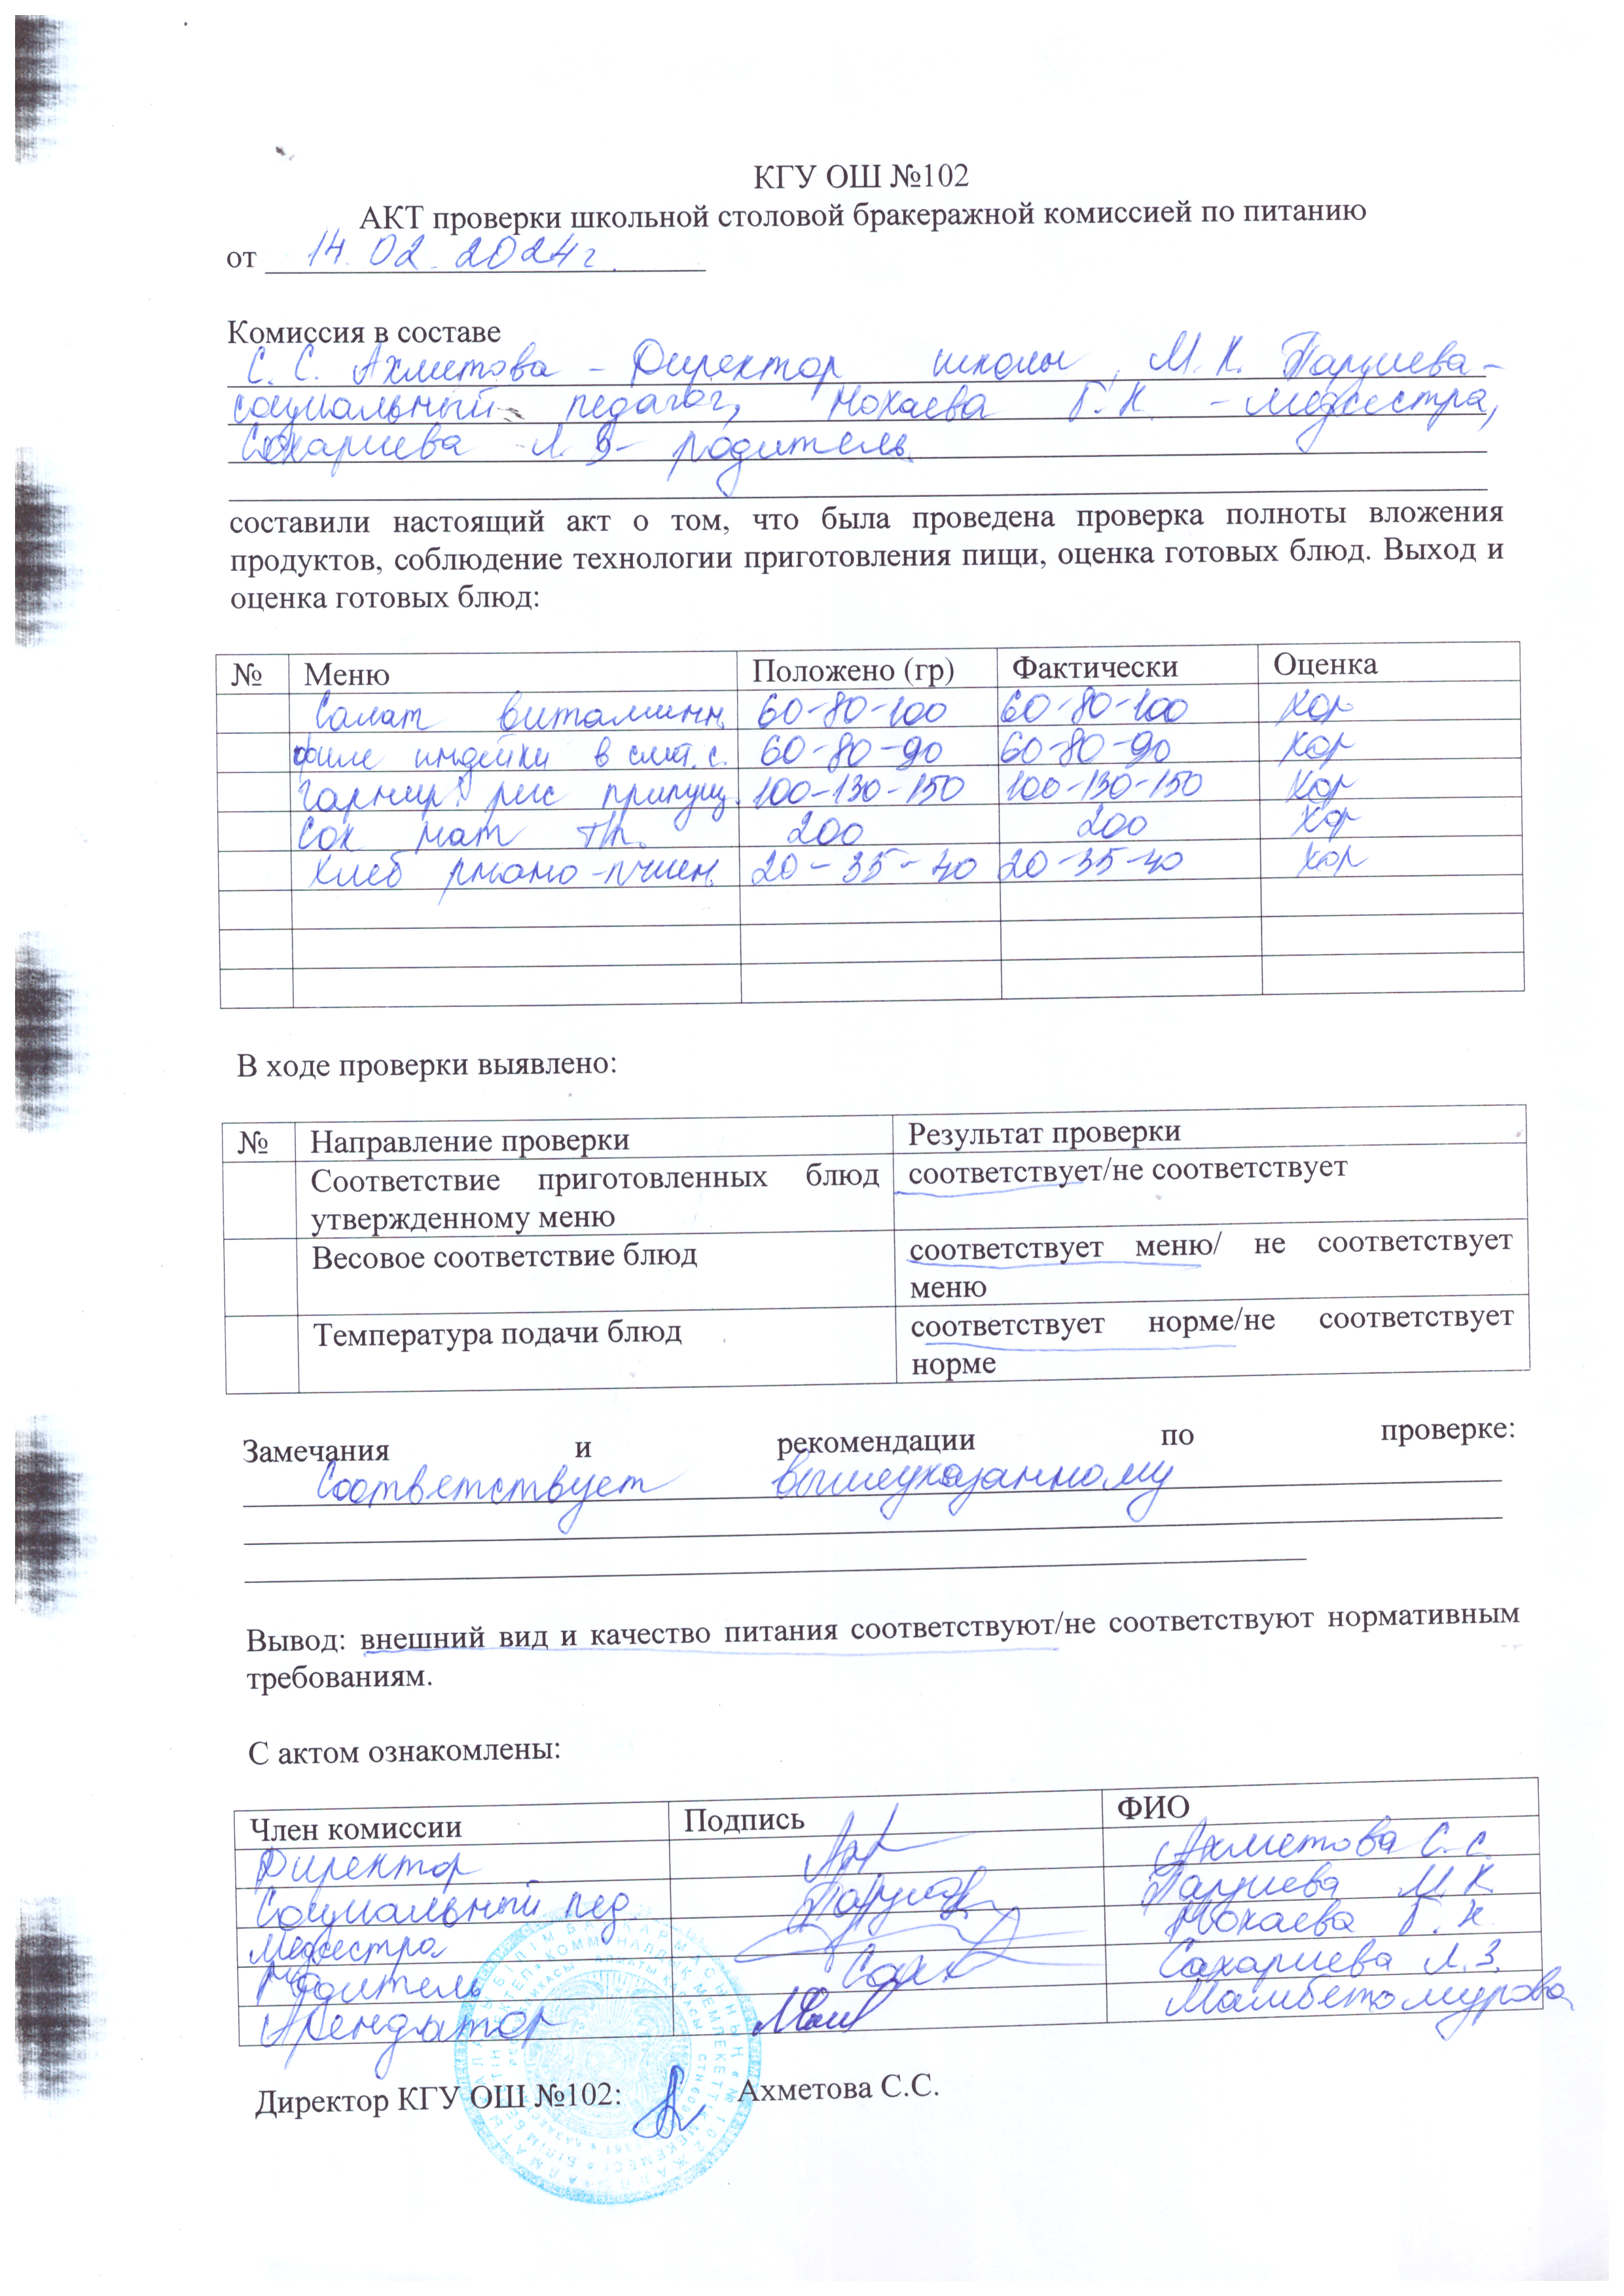 КГУ ОШ №102
АКТ проверки школьной столовой бракеражной комиссией по питанию
от 14.02.2024г.
Комиссия в составе
С.С. Ахметова - Директор школы, М.К. Паршиева -
социальный педагог, Мокаева Г.К. - медсестра,
Сахариева Л.З - родитель
составили настоящий акт о том, что была проведена проверка полноты вложения
продуктов, соблюдение технологии приготовления пищи, оценка готовых блюд. Выход и
оценка готовых блюд:
№ Меню Положено (гр) Фактически Оценка
Салат витаминн 60-80-100 60-80-100 хор
филе индейки в смет.с. 60-80-90 60-80-90 хор
Гарнир: рис припущ. 100-130-150 100-130-150 хор
Сок нат т/п. 200 200 хор
Хлеб ржано-пшен 20-35-40 20-35-40 хор
В ходе проверки выявлено:
№ Направление проверки Результат проверки
Соответствие приготовленных блюд соответствует/не соответствует
утвержденному меню
Весовое соответствие блюд соответствует меню/ не соответствует
меню
Температура подачи блюд соответствует норме/не соответствует
норме
Замечания и рекомендации по проверке:
Соответствует вышеуказанному
Вывод: внешний вид и качество питания соответствуют/не соответствуют нормативным
требованиям.
С актом ознакомлены:
Член комиссии Подпись ФИО
Директор Ахметова С.С.
Социальный пед. Паршиева М.К
Медсестра Мокаева Г.К
Родитель Сахариева Л.З.
Арендатор Мамбетомурова
Директор КГУ ОШ №102: Ахметова С.С.